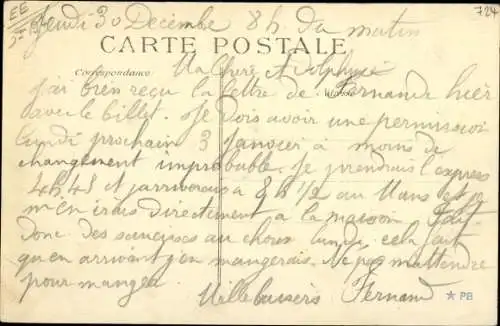 EE
724
Jeudi 30 Decembre 8h du matin
CARTE POSTALE
Correspondance
Ma Chere Adolphine
J'ai bien reçu la lettre de Fernande hier
avec le billet. Je dois avoir une permission
Lundi prochain 3 Janvier a moins de
changement improbable. Je prendrais l'express
4h45 et j'arriverais a 8h 1/2 au Mans et je
m'en irais directement a la maison Fait
donc des saucisses au choux lundi cela fait
qu'en arrivant j'en mangerais. Ne pas m'attendre
pour manger.
Mille baisers Fernand
PB